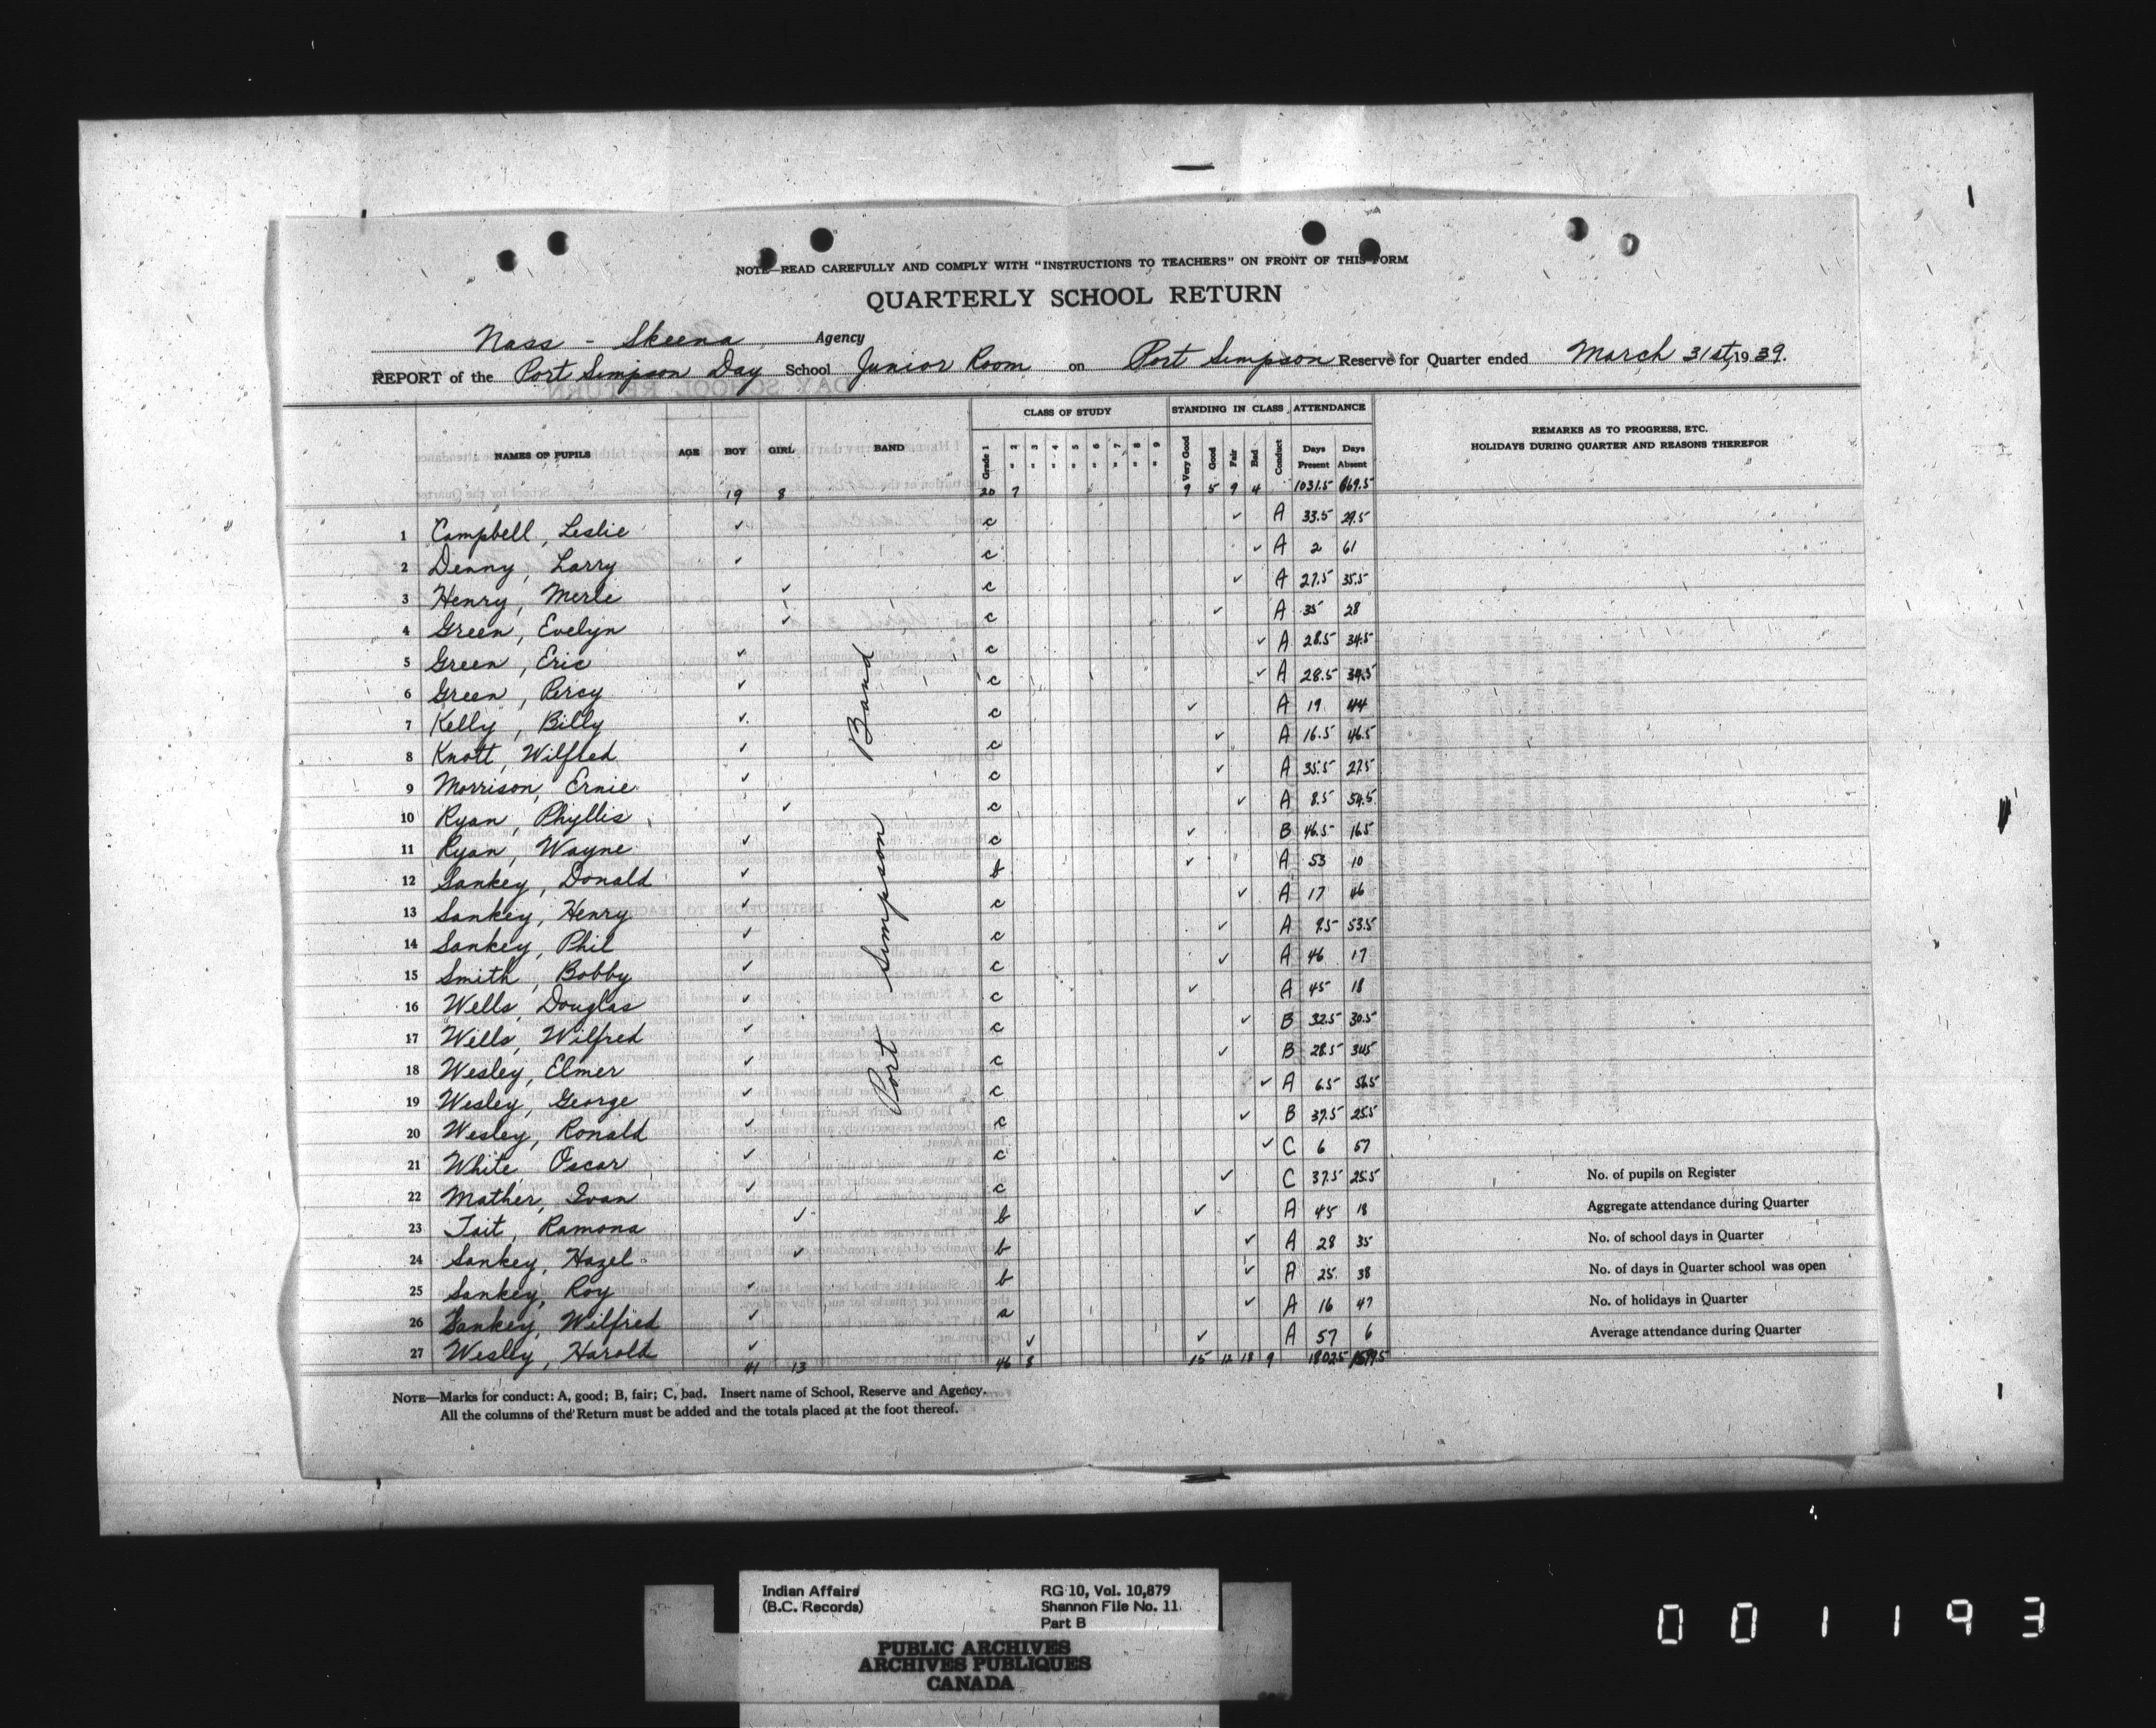 NOTE—READ CAREFULLY AND COMPLY WITH "INSTRUCTIONS TO TEACHERS" ON FRONT OF THIS FORM
QUARTERLY SCHOOL RETURN
Nass - Skeena Agency
REPORT of the Port Simpson Day School Junior Room on Port Simpson Reserve for Quarter ended March 31st, 1939.
CLASS OF STUDY STANDING IN CLASS ATTENDANCE
NAMES OF PUPILS AGE BOY GIRL BAND Grade 1 " 2 " 3 " 4 " 5 " 6 " 7 " 8 " 9 Very Good Good Fair Bad Conduct Days Present Days Absent REMARKS AS TO PROGRESS, ETC. HOLIDAYS DURING QUARTER AND REASONS THEREFOR
19 8 20 7 9 5 9 4 1031.5 669.5
Port Simpson Band
1 Campbell, Leslie ✓ c ✓ A 33.5 29.5
2 Denny, Larry ✓ c ✓ A 2 61
3 Henry, Merle ✓ c ✓ A 27.5 35.5
4 Green, Evelyn ✓ c ✓ A 35 28
5 Green, Eric ✓ c ✓ A 28.5 34.5
6 Green, Percy ✓ c ✓ A 28.5 34.5
7 Kelly, Billy ✓ c ✓ A 19 44
8 Knott, Wilfred ✓ c ✓ A 16.5 46.5
9 Morrison, Ernie ✓ c ✓ A 35.5 27.5
10 Ryan, Phyllis ✓ c ✓ A 8.5 54.5
11 Ryan, Wayne ✓ c ✓ B 46.5 16.5
12 Sankey, Donald ✓ b ✓ A 53 10
13 Sankey, Henry ✓ c ✓ A 17 46
14 Sankey, Phil ✓ c ✓ A 9.5 53.5
15 Smith, Bobby ✓ c ✓ A 46 17
16 Wells, Douglas ✓ c ✓ A 45 18
17 Wells, Wilfred ✓ c ✓ B 32.5 30.5
18 Wesley, Elmer ✓ c ✓ B 28.5 34.5
19 Wesley, George ✓ c ✓ A 6.5 56.5
20 Wesley, Ronald ✓ c ✓ B 37.5 25.5
21 White Oscar ✓ c ✓ C 6 57
22 Mather, Ivan ✓ c ✓ C 37.5 25.5 No. of pupils on Register
23 Tait, Ramona ✓ b ✓ A 45 18 Aggregate attendance during Quarter
24 Sankey, Hazel ✓ b ✓ A 28 35 No. of school days in Quarter
25 Sankey, Roy ✓ b ✓ A 25 38 No. of days in Quarter school was open
26 Sankey, Wilfred ✓ a ✓ A 16 47 No. of holidays in Quarter
27 Wesley, Harold ✓ ✓ ✓ A 57 6 Average attendance during Quarter
41 13 46 8 15 12 18 9 1802.5 1599.5
NOTE—Marks for conduct: A, good; B, fair; C, bad. Insert name of School, Reserve and Agency.
All the columns of the Return must be added and the totals placed at the foot thereof.
Indian Affairs
(B.C. Records)
RG 10, Vol. 10,879
Shannon File No. 11
Part B
PUBLIC ARCHIVES
ARCHIVES PUBLIQUES
CANADA
001193